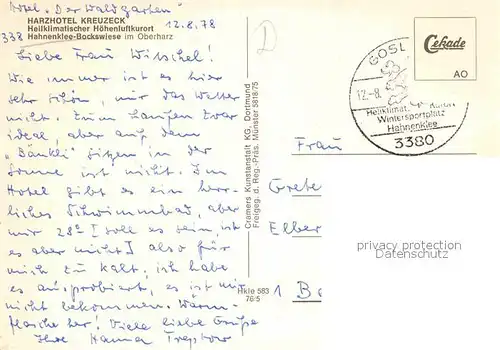 Hotel "Der Waldgarten"
HARZHOTEL KREUZECK 12.8.78
Heilklimatischer Höhenluftkurort
338 Hahnenklee-Bockswiese im Oberharz
Liebe Frau Witschel!
Wie immer ist es hier
sehr schön, nur das Wetter
nicht. Zum Laufen zwar
ideal, aber auf dem
"Bänkli" sitzen in der
Sonne ist nicht. Im
Hotel gibt es ein herr-
liches Schwimmbad, aber
nur 28° [soll es sein, ist
es aber nicht] also für
mich zu kalt, ich habe
es ausprobiert, es ist mir
nicht bekommen. Wärm-
flasche her! Viele liebe Grüße
Ihre Hanna Treptow
D
Cramers Kunstanstalt KG, Dortmund
Freigeg. d. Reg.-Präs. Münster 5818/75
Hkle 583
76/5
Cekade
AO
GOSL
12.-8.
Heilklimat.
Wintersportplatz
Hahnenklee
3380
Frau
Grete
Elber
1 B
privacy protection
Datenschutz